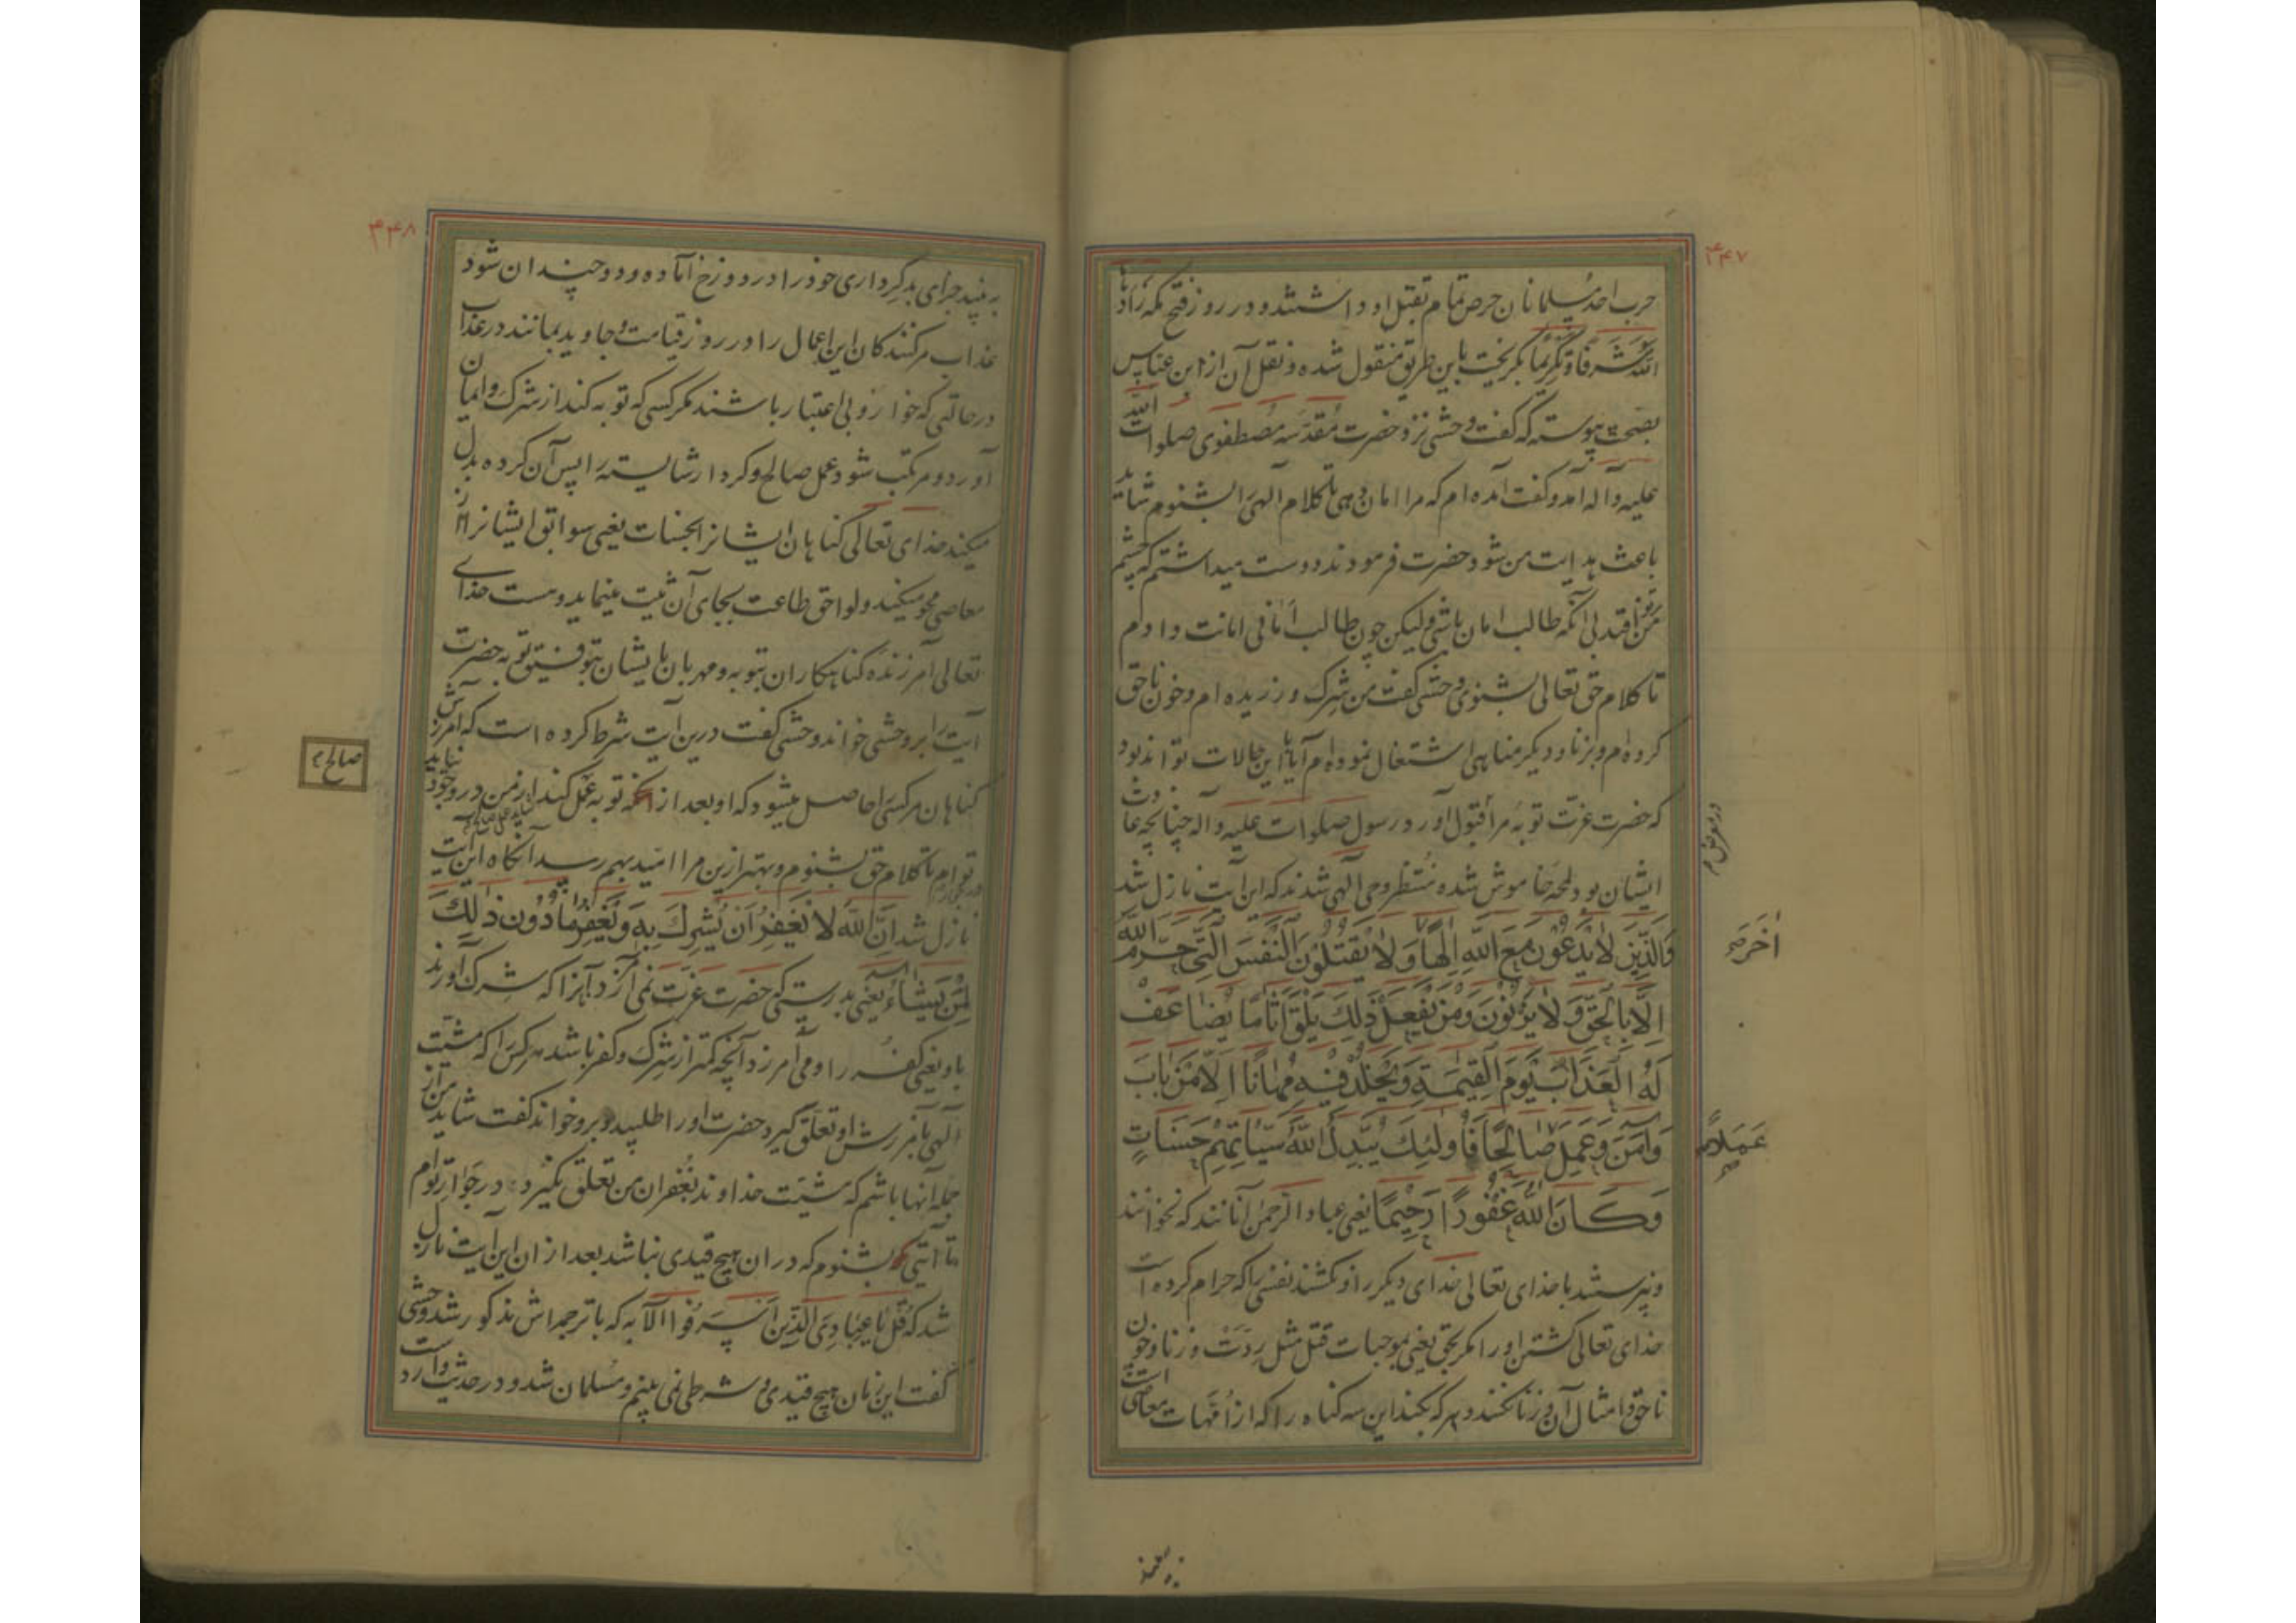 ۴۴۷
حرب احد مسلمانان حرص تمام بقتل او داشتند و در روز فتح مکه زادها
الله شرفا و تکریما بگریخت باین طریق منقول شده و نقل آن از ابن عباس
بصحت پیوسته که گفت وحشی نزد حضرت مقدسه مصطفوی صلوات الله
علیه و آله آمد و گفت آمده‌ام که مرا امان دهی تا کلام الهی را بشنوم شاید
باعث هدایت من شود حضرت فرمودند دوست میداشتم که چشم
من بر تو افتد بی آنکه طالب امان باشی ولیکن چون طالب امانی امانت دادم
تا کلام حق تعالی بشنوی وحشی گفت من شرک ورزیده‌ام و خون ناحق
کرده‌ام و بزنا و دیگر مناهی اشتغال نموده‌ام آیا با این حالات تواند بود
که حضرت عزت توبه مرا قبول آورد رسول صلوات علیه و آله چنانچه عادت
در معرض
ایشان بود لمحه خاموش شده منتظر وحی الهی شدند که این آیت نازل شد
وَالَّذِينَ لَا يَدْعُونَ مَعَ اللَّهِ إِلَهًا وَلَا يَقْتُلُونَ النَّفْسَ الَّتِي حَرَّمَ اللَّهُ
اٰخَرَ
إِلَّا بِالْحَقِّ وَلَا يَزْنُونَ وَمَنْ يَفْعَلْ ذَلِكَ يَلْقَ أَثَامًا يُضَاعَفْ
لَهُ الْعَذَابُ يَوْمَ الْقِيمَةِ وَيَخْلُدْ فِيهِ مُهَانًا إِلَّا مَنْ تَابَ
وَآمَنَ وَعَمِلَ صَالِحًا فَأُولَئِكَ يُبَدِّلُ اللَّهُ سَيِّئَاتِهِمْ حَسَنَاتٍ
عَمَلًا
وَكَانَ اللَّهُ غَفُورًا رَحِيمًا یعنی عباد الرحمن آنانند که نخوانند
و نپرستند با خدای تعالی خدای دیگر را و نکشند نفسی را که حرام کرده است
خدای تعالی کشتن او را مگر بحق یعنی بموجبات قتل مثل ردت و زنا و خون
ناحق و امثال آن و زنا نکنند و هر که بکند این سه گناه را که از امهات معاصی است
۴۴۸
به بیند جزای بدکرداری خود را در دوزخ آماده و دو چندان شود
عذاب مر کنندکان این اعمال را در روز قیامت و جاوید بمانند در عذاب
در حالتی که خوار و بی اعتبار باشند مکر کسی که توبه کند از شرک و ایمان
آورد و مرتکب شود عمل صالح و کردار شایسته را پس آن کرده بدل
میکند خدای تعالی کناهان ایشانرا بحسنات یعنی سوابق ایشانرا از
معاصی محو میکند و لواحق طاعت بجای آن ثبت مینماید و هست خدای
تعالی آمرزنده کناهکاران بتوبه و مهربان بایشان بتوفیق توبه حضرت
آیت را بر وحشی خواند وحشی گفت درین آیت شرط کرده است که آمرزش
صالح
کناهان مر کسی را حاصل میشود که او بعد از آنکه توبه عمل کند از من در وجود نیاید
شاید عمل صالح
در جوار
توام تا کلام حق بشنوم و بهتر ازین مرا امید بهم رسد آنکاه این آیت
نازل شد إِنَّ اللَّهَ لَا يَغْفِرُ أَنْ يُشْرَكَ بِهِ وَيَغْفِرُ مَا دُونَ ذٰلِكَ
لِمَنْ يَشَاءُ یعنی بدرستی که حضرت عزت نمی آمرزد آنرا که شرک آورند
باو یعنی کفر را و می آمرزد آنچه کمتر از شرک و کفر باشد هر کس را که مشیت
الهی بآمرزش او تعلق گیرد حضرت او را طلبید و برو خواند گفت شاید من از
جمله آنها باشم که مشیت خداوند بغفران من تعلق نگیرد در جوار توام
تا آیتی بشنوم که در آن هیچ قیدی نباشد بعد از آن این آیت نازل
شد که قُلْ يَا عِبَادِيَ الَّذِينَ أَسْرَفُوا الآیه که با ترجمه‌اش مذکور شد وحشی
گفت این زمان هیچ قیدی و شرطی نمی بینم و مسلمان شد و در حدیث وارد است